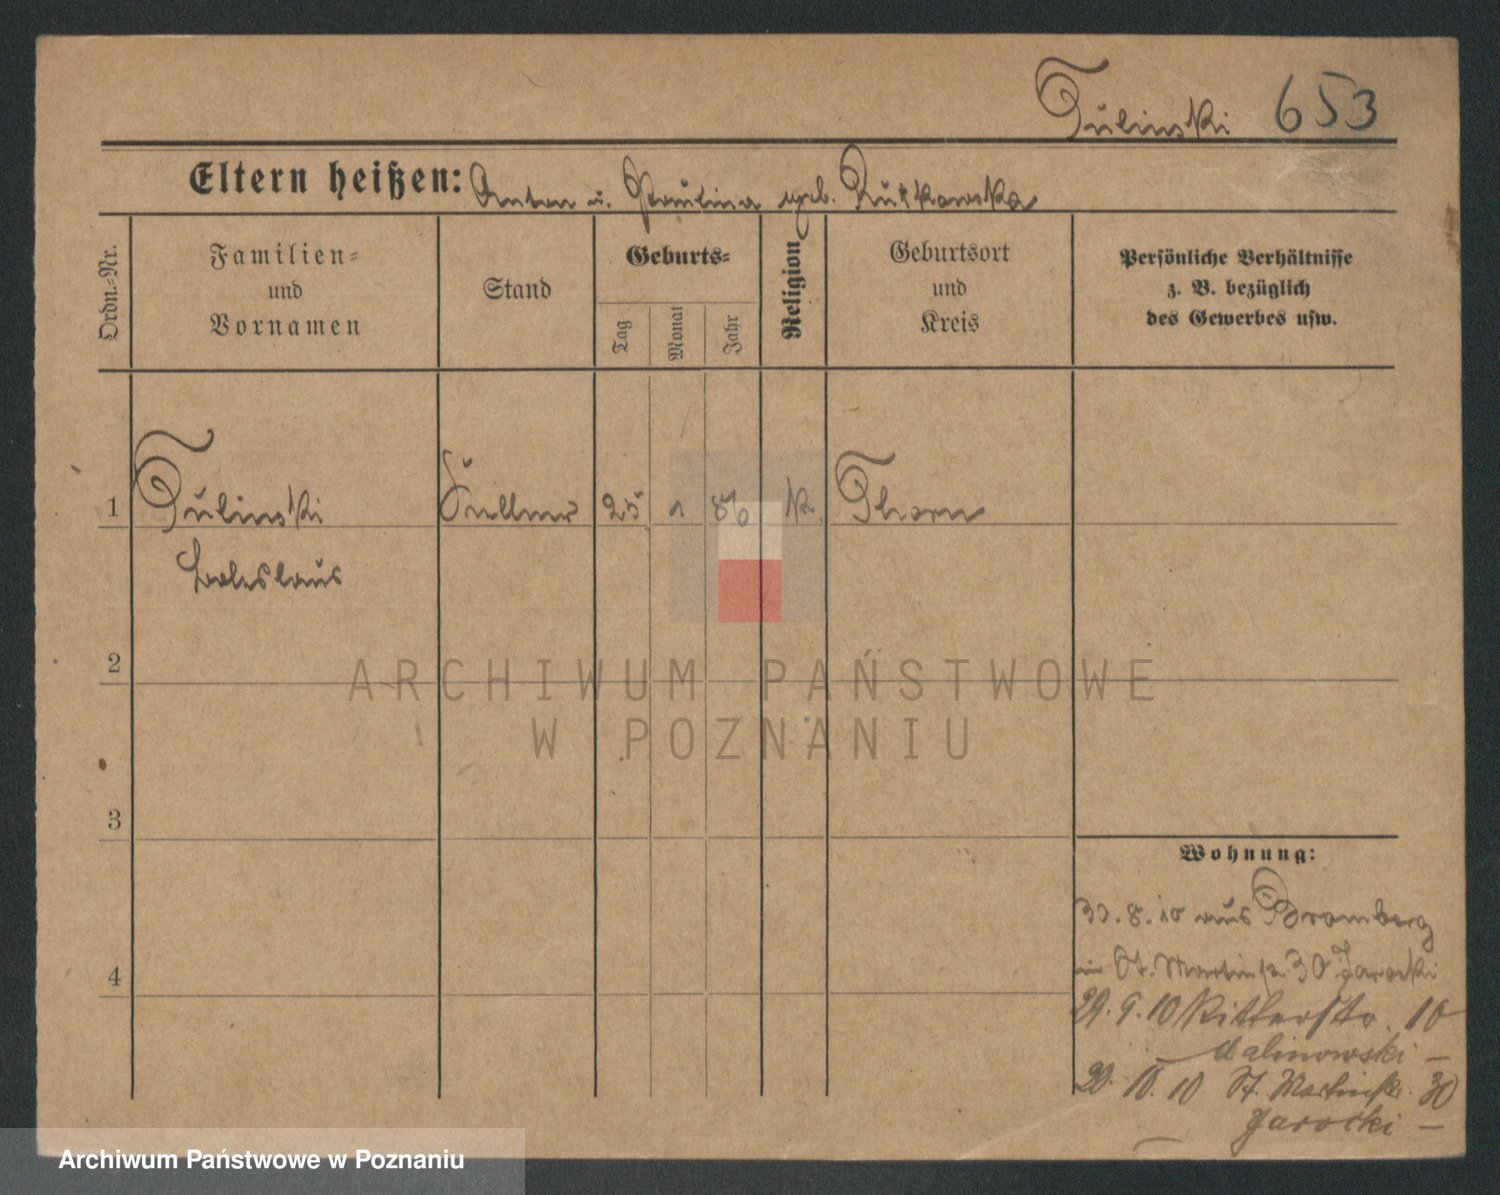 Tulinski 653
Eltern heißen: Anton u. Paulina geb. Rutkowska
Ordn.-Nr.
Familien-
und
Vornamen
Stand
Geburts-
Tag
Monat
Jahr
Religion
Geburtsort
und
Kreis
Persönliche Verhältnisse
z. B. bezüglich
des Gewerbes usw.
1 Tulinski Kellner 25 1 86 k. Thorn
Boleslaus
2
ARCHIWUM PAŃSTWOWE
W POZNANIU
3
Wohnung:
30.8.10 aus Bromberg
in St. Martinstr. 30 Jarocki
4
29.9.10 Ritterstr. 10
Malinowski –
20. 10. 10 St. Martinstr. 30
Jarocki –
Archiwum Państwowe w Poznaniu